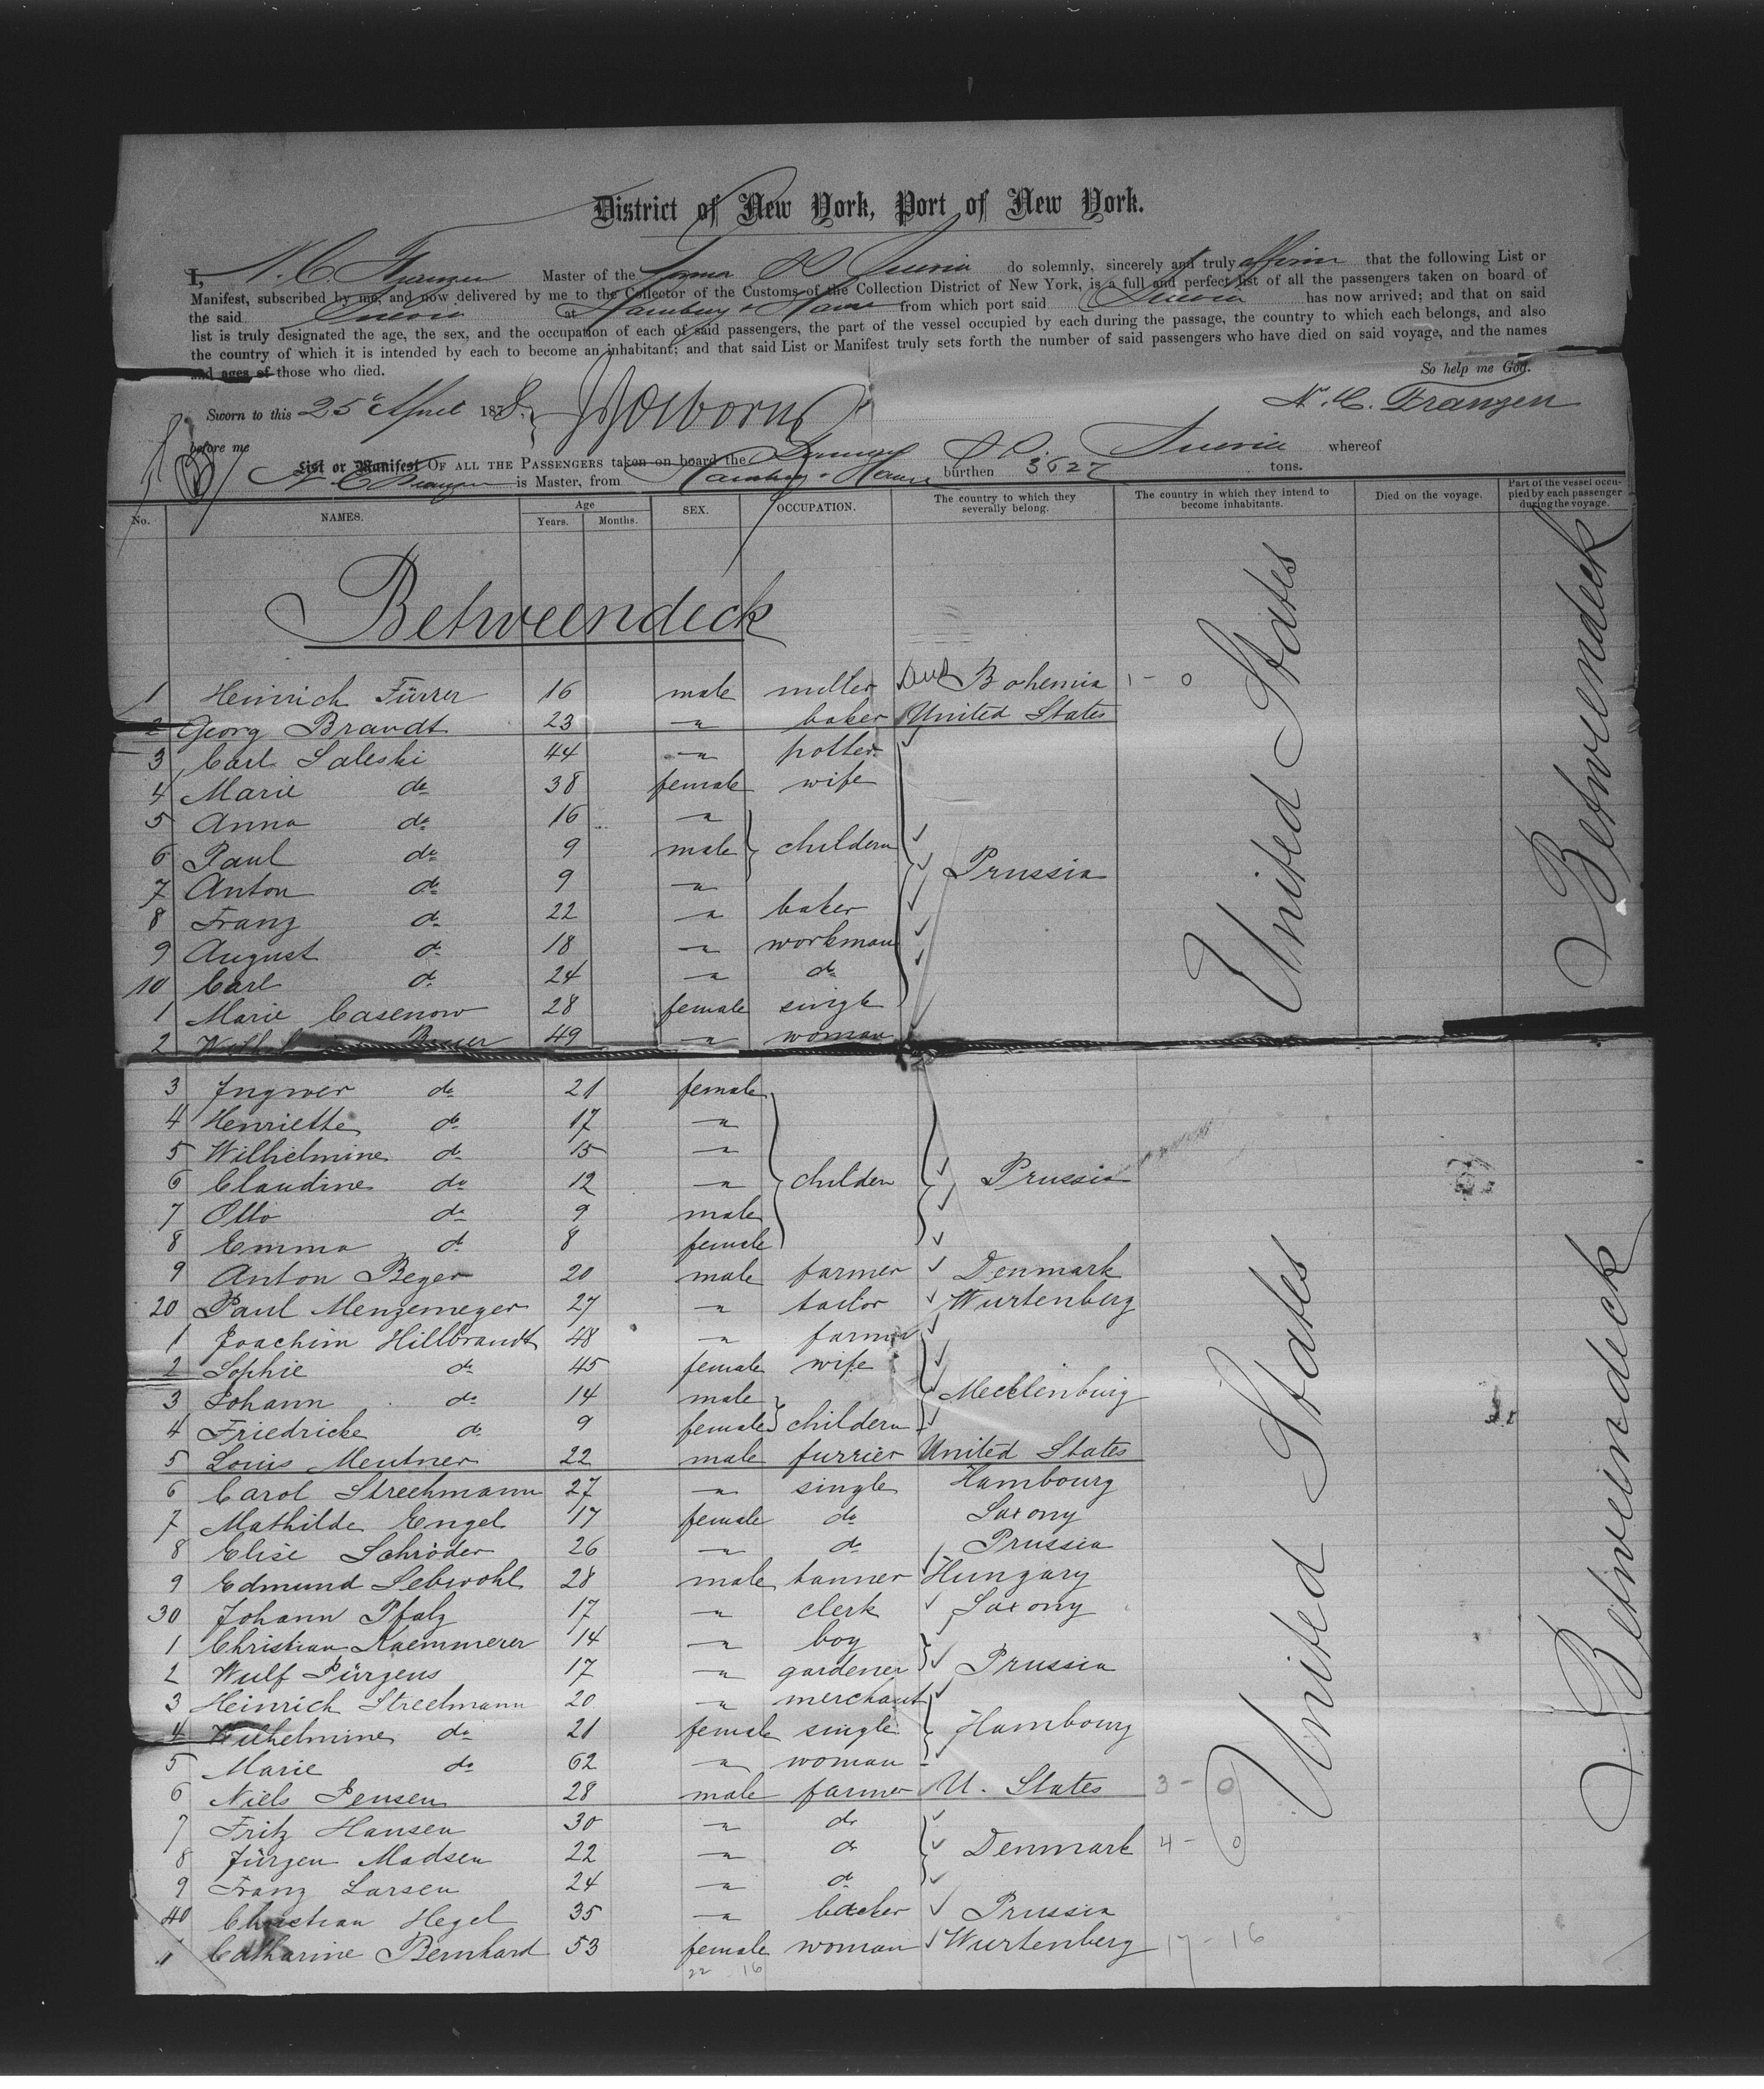 District of New York, Port of New York.
I, N. C. Franzen Master of the German SS Suevia do solemnly, sincerely and truly affirm that the following List or
Manifest, subscribed by me, and now delivered by me to the Collector of the Customs of the Collection District of New York, is a full and perfect list of all the passengers taken on board of
the said Suevia at Hamburg & Havre from which port said Suevia has now arrived; and that on said
list is truly designated the age, the sex, and the occupation of each of said passengers, the part of the vessel occupied by each during the passage, the country to which each belongs, and also
the country of which it is intended by each to become an inhabitant; and that said List or Manifest truly sets forth the number of said passengers who have died on said voyage, and the names
and ages of those who died.
So help me God.
Sworn to this 25 April 1878. N. C. Franzen
before me
List or Manifest OF ALL THE PASSENGERS taken on board the German Suevia whereof
N C Franzen is Master, from Hamburg & Havre burthen 3627 tons.
No. NAMES. Age Years. Months. SEX. OCCUPATION. The country to which they severally belong. The country in which they intend to become inhabitants. Died on the voyage. Part of the vessel occupied by each passenger during the voyage.
Betweendeck
1 Heinrich Fürrer 16 male miller Bohemia 1 - 0
2 Georg Brandt 23 " baker United States
3 Carl Saleski 44 " potter
4 Marie do 38 female wife
5 Anna do 16 "
6 Paul do 9 male childern Prussia
7 Anton do 9 "
8 Franz do 22 " baker
9 August do 18 " workman
10 Carl do 24 " do
1 Marie Casenow 28 female single
2 49 " woman
United States
Betweendeck
3 Ingwer do 21 female
4 Henriette do 17 "
5 Wilhelmine do 15 "
6 Claudine do 12 " childen Prussia
7 Otto do 9 male
8 Emma do 8 female
9 Anton Beyer 20 male farmer Denmark
20 Paul Menzemeyer 27 " tailor Wurtenberg
1 Joachim Hillbrandt 48 " farmer
2 Sophie do 45 female wife
3 Johann do 14 male Mecklenburg
4 Friedricke do 9 female childern
5 Louis Meutner 22 male furrier United States
6 Carol Strechmann 27 " single Hambourg
7 Mathilde Engel 17 female do Saxony
8 Elise Schröder 26 " do Prussia
9 Edmund Lebwohl 28 male tanner Hungary
30 Johann Pfalz 17 " clerk Saxony
1 Christian Kaemmerer 14 " boy
2 Wulf Pürgens 17 " gardener Prussia
3 Heinrich Strechmann 20 " merchant
4 Wilhelmine do 21 female single Hambourg
5 Marie do 62 " woman
6 Niels Jensen 28 male farmer U. States 3 - 0
7 Fritz Hansen 30 " do
8 Jürgen Madsen 22 " do Denmark 4 - 0
9 Franz Larsen 24 " do
40 Christian Hegel 35 " backer Prussia
1 Catharine Bernhard 53 female woman Wurtenberg 17 - 16
22 16
United States
Betweendeck